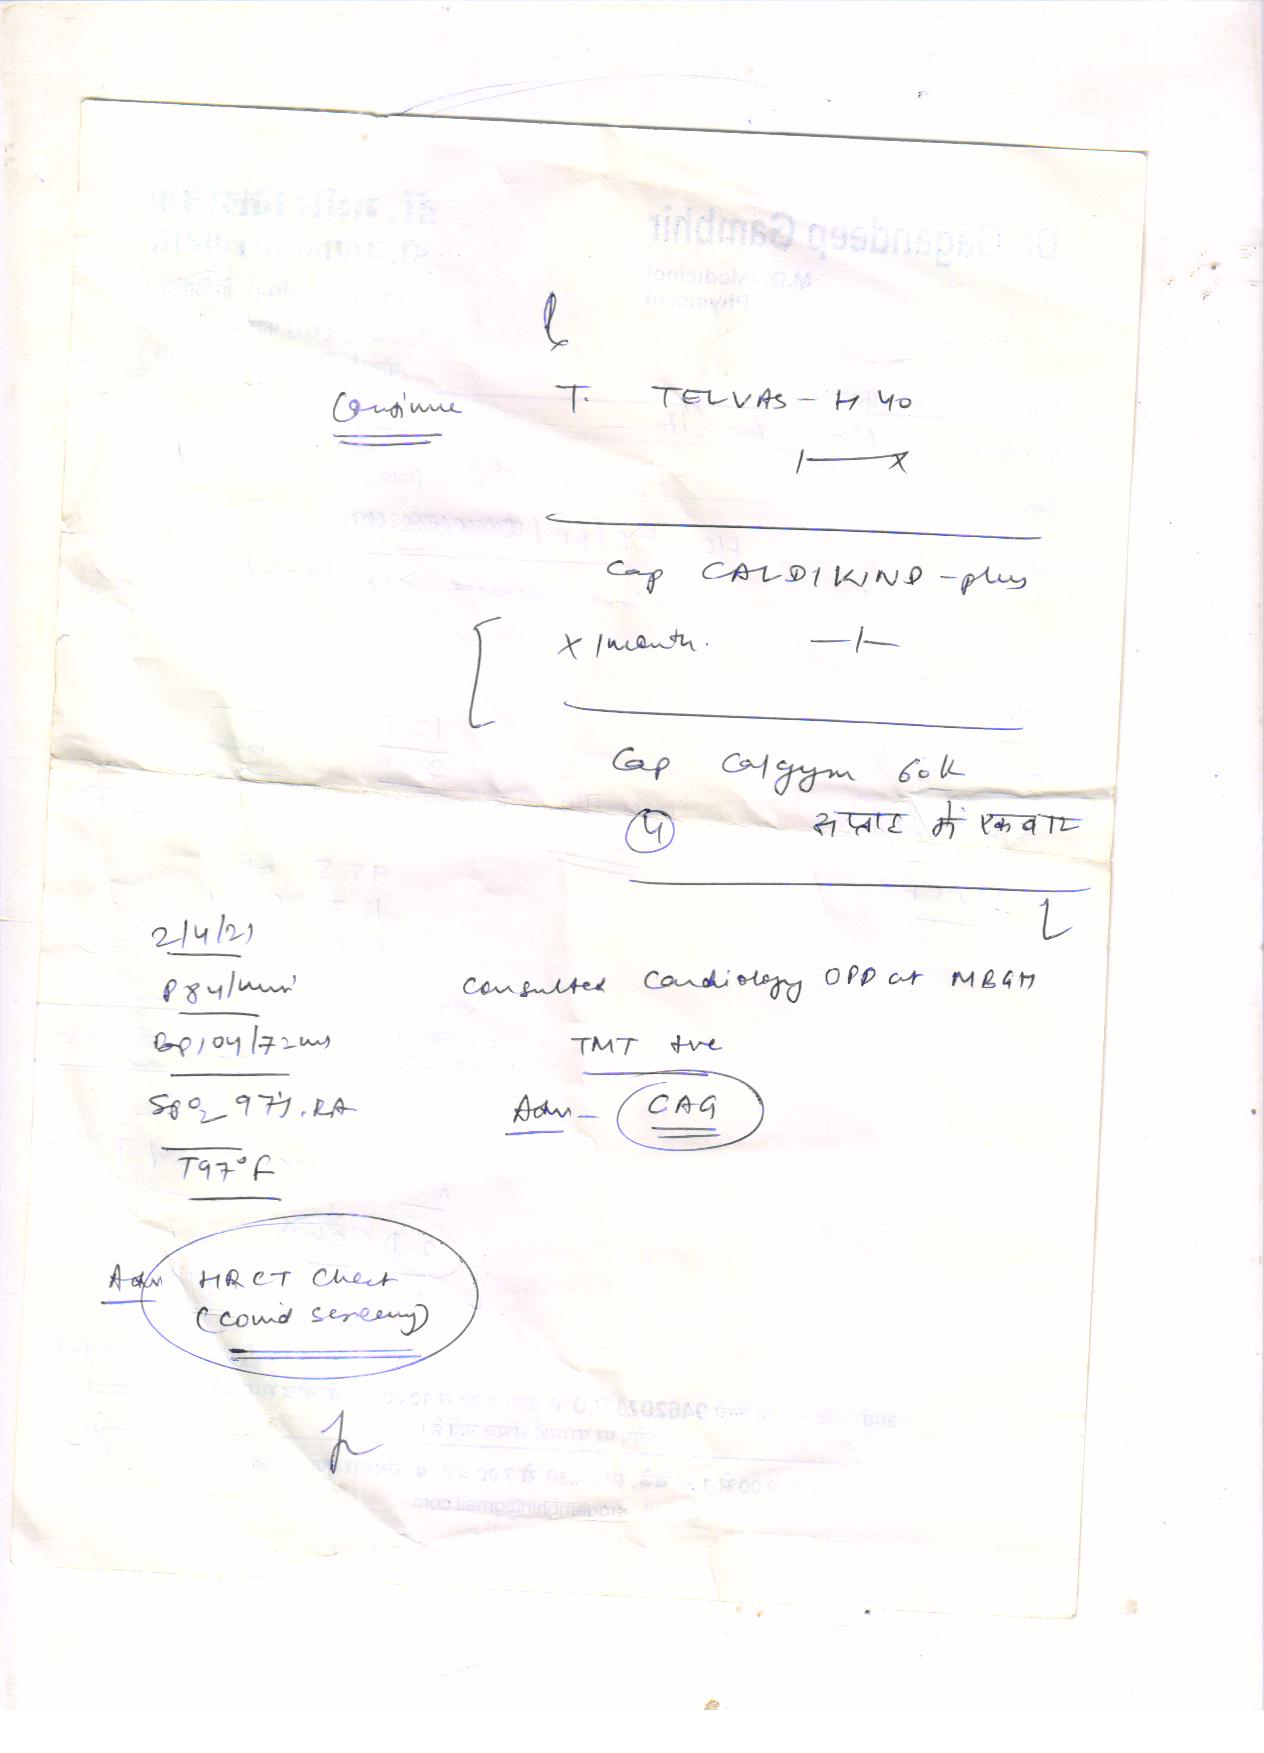 Continue T. TELVAS - H 40
Cap CALDIKIND - plus
x 1 month.
Cap Calgym 60K
4 सप्ताह में एकबार
2/4/21
P 84/min
Consulted Cardiology OPD at MBGH
BP 104/72
TMT +ve
SpO2 97%. RA
Adv - CAG
T 97° F
Adv HRCT Chest
(Covid screening)